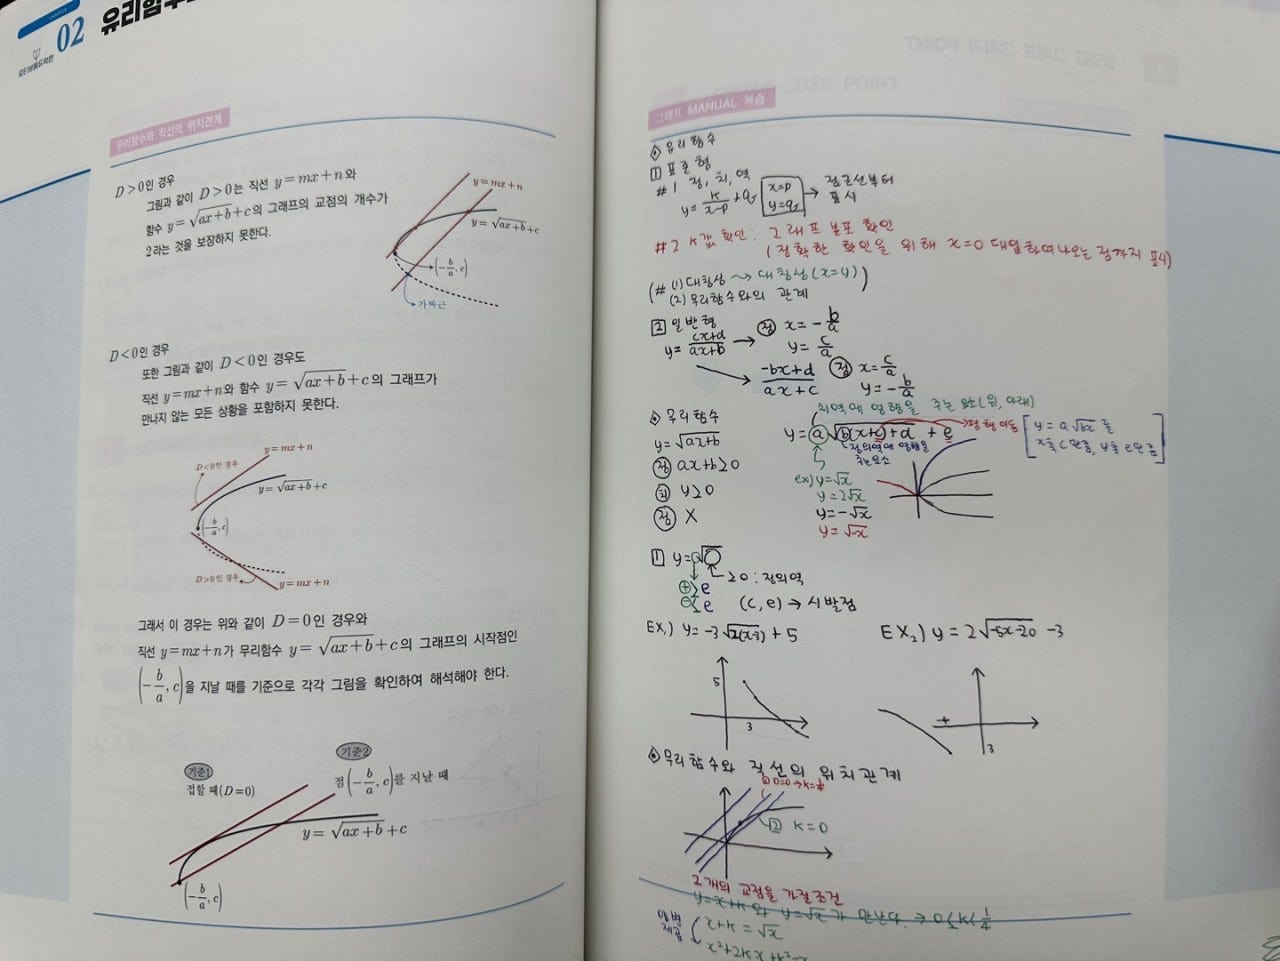 02
무리함수와 직선의 위치관계
D>0인 경우
그림과 같이 D>0는 직선 y=mx+n와
함수 y=√(ax+b)+c의 그래프의 교점의 개수가
2라는 것을 보장하지 못한다.
y=mx+n
y=√(ax+b)+c
(-b/a, c)
가짜근
D<0인 경우
또한 그림과 같이 D<0인 경우도
직선 y=mx+n와 함수 y=√(ax+b)+c의 그래프가
만나지 않는 모든 상황을 포함하지 못한다.
D<0인 경우
y=mx+n
y=√(ax+b)+c
(-b/a, c)
D>0인 경우
y=mx+n
그래서 이 경우는 위와 같이 D=0인 경우와
직선 y=mx+n가 무리함수 y=√(ax+b)+c의 그래프의 시작점인
(-b/a, c)을 지날 때를 기준으로 각각 그림을 확인하여 해석해야 한다.
기준1
접할 때(D=0)
기준2
점(-b/a, c)를 지날 때
y=√(ax+b)+c
(-b/a, c)
그래프 MANUAL 복습
유리함수
1 표준형
#1 점, 치, 역
y=k/(x-p)+q
x=p
y=q
→ 점근선부터
표시
#2 k값 확인: 그래프 분포 확인
(정확한 확인을 위해 x=0 대입하여나오는 점까지 표시)
(# (1) 대칭성 → 대칭성(x=y)
(2) 무리함수와의 관계)
2 일반형
y=(cx+d)/(ax+b) → 점 x=-b/a
y=c/a
(-bx+d)/(ax+c)
점 x=c/a
y=-b/a
무리함수
y=√(ax+b)
정 ax+b≥0
치 y≥0
점 X
치역에 영향을 주는 요소(위, 아래)
y=a√(b(x+c)+d)+e → 평행이동
[y=a√bx를
x축 c만큼, y축 e만큼]
정의역에 영향을
주는요소
ex) y=√x
y=2√x
y=-√x
y=√-x
1 y=○√○
≥0 : 정의역
⊕≥e
⊖≤e
(c, e) → 시발점
EX1) y=-3√(2(x-3))+5
EX2) y=2√(-5x-20) -3
5
3
-4
3
무리함수와 직선의 위치관계
① D=0→k=1/4
② k=0
2개의 교점을 가질조건
y=x+k와 y=√x가 만난다. → 0≤k<1/4
양변
제곱
x+k=√x
x²+2kx+k²=x